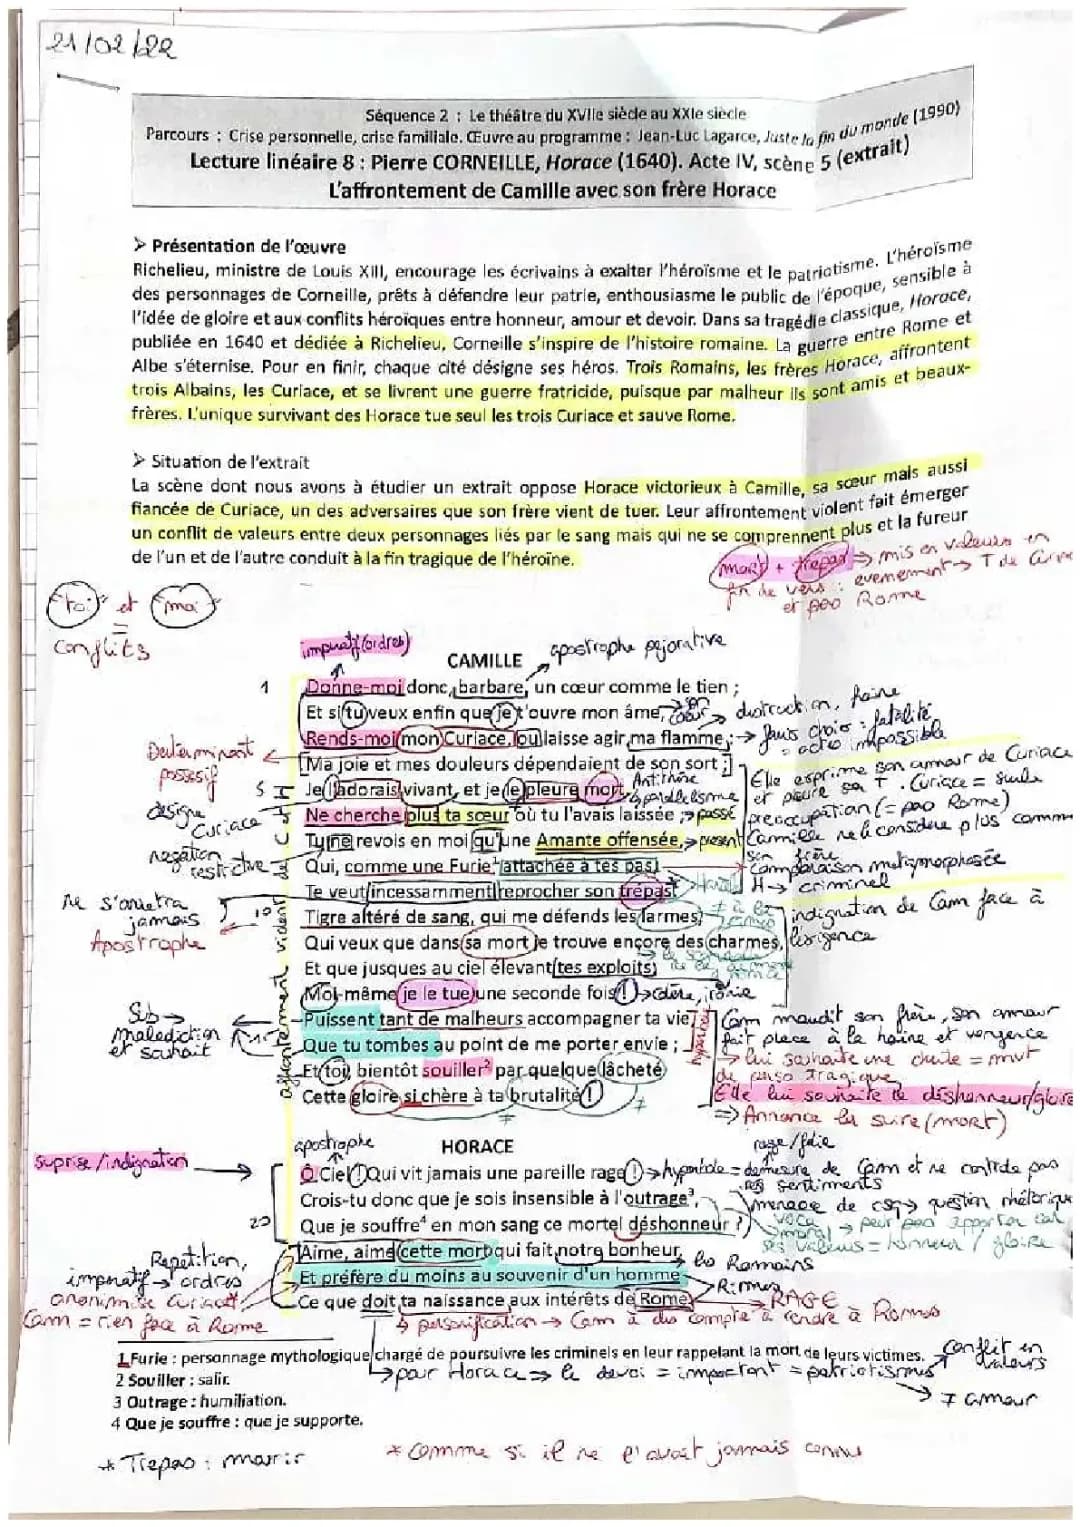 21/02/22
Séquence 2 : Le théâtre du XVIIe siècle au XXIe siècle
Parcours : Crise personnelle, crise familiale. Œuvre au programme : Jean-Luc Lagarce, Juste la fin du monde (1990)
Lecture linéaire 8 : Pierre CORNEILLE, Horace (1640). Acte IV, scène 5 (extrait)
L'affrontement de Camille avec son frère Horace
➢ Présentation de l'œuvre
Richelieu, ministre de Louis XIII, encourage les écrivains à exalter l'héroïsme et le patriotisme. L'héroïsme
des personnages de Corneille, prêts à défendre leur patrie, enthousiasme le public de l'époque, sensible à
l'idée de gloire et aux conflits héroïques entre honneur, amour et devoir. Dans sa tragédie classique, Horace,
publiée en 1640 et dédiée à Richelieu, Corneille s'inspire de l'histoire romaine. La guerre entre Rome et
Albe s'éternise. Pour en finir, chaque cité désigne ses héros. Trois Romains, les frères Horace, affrontent
trois Albains, les Curiace, et se livrent une guerre fratricide, puisque par malheur ils sont amis et beaux-
frères. L'unique survivant des Horace tue seul les trois Curiace et sauve Rome.
➢ Situation de l'extrait
La scène dont nous avons à étudier un extrait oppose Horace victorieux à Camille, sa sœur mais aussi
fiancée de Curiace, un des adversaires que son frère vient de tuer. Leur affrontement violent fait émerger
un conflit de valeurs entre deux personnages liés par le sang mais qui ne se comprennent plus et la fureur
de l'un et de l'autre conduit à la fin tragique de l'héroïne.
mort + trépas → mis en valeurs en
fin de vers : evenement → T de
et pas Rome
"toi" et "moi"
=
conflits
impératif (ordres)
apostrophe péjorative
CAMILLE
1 Donne-moi donc, barbare, un cœur comme le tien ;
Et si tu veux enfin que je t'ouvre mon âme, → destruction, haine
Rends-moi mon Curiace, ou laisse agir ma flamme ; → faux choix : fatalité
= acte impossible
Déterminant possessif
Ma joie et mes douleurs dépendaient de son sort ;
Elle exprime son amour de Curiace
5 Je l'adorais vivant, et je le pleure mort. Antithèse
parallélisme
et pleure sa T. Curiace = seule
préoccupation (= pas Rome)
désigne Curiace
Ne cherche plus ta sœur où tu l'avais laissée ; → passé
Tu ne revois en moi qu'une Amante offensée, → présent
Camille ne le considère plus comme
son frère
négation restrictive
Qui, comme une Furie¹ attachée à tes pas,
Comparaison métamorphosée
Te veut incessamment reprocher son trépas.
H → criminel
ne s'arretra jamais
Apostrophe
10 Tigre altéré de sang, qui me défends les larmes,
indignation de Cam face à
l'exigence
Qui veux que dans sa mort je trouve encore des charmes,
Et que jusques au ciel élevant tes exploits,
Moi-même je le tue une seconde fois ! → colère, ironie
affrontement evident
Sub → malediction et souhait
Puissent tant de malheurs accompagner ta vie,
Que tu tombes au point de me porter envie ;
Et toi, bientôt souiller² par quelque lâcheté
Cette gloire si chère à ta brutalité !
hyperbole
Cam maudit son frère, son amour
fait place à la haine et vengence
→ lui souhaite une chute = mvt
de perso tragique
Elle lui souhaite le déshonneur/gloire
⇒ Annonce la suite (mort)
apostrophe
HORACE
rage/folie
suprise/indignation
Ô Ciel ! Qui vit jamais une pareille rage ! → hyperbole = démesure de Cam et ne contrôle pas
ses sentiments
Crois-tu donc que je sois insensible à l'outrage³,
20 Que je souffre⁴ en mon sang ce mortel déshonneur ?
question rhétorique
ses valeurs = honneur / gloire
Aime, aime cette mort qui fait notre bonheur, → les Romains
Et préfère du moins au souvenir d'un homme
Ce que doit ta naissance aux intérêts de Rome.
Rimes
RAGE
Repetition, imperatif → ordres
anonymise Curiace
Cam = rien face à Rome
personification → Cam à des compte à rendre à Rome
1 Furie : personnage mythologique chargé de poursuivre les criminels en leur rappelant la mort de leurs victimes.
conflit en valeurs
pour Horace ⇒ le devoir = important = patriotisme
≠ amour
2 Souiller : salir.
3 Outrage : humiliation.
4 Que je souffre : que je supporte.
* Trépas : mourir
* comme si il ne l'avait jamais connu